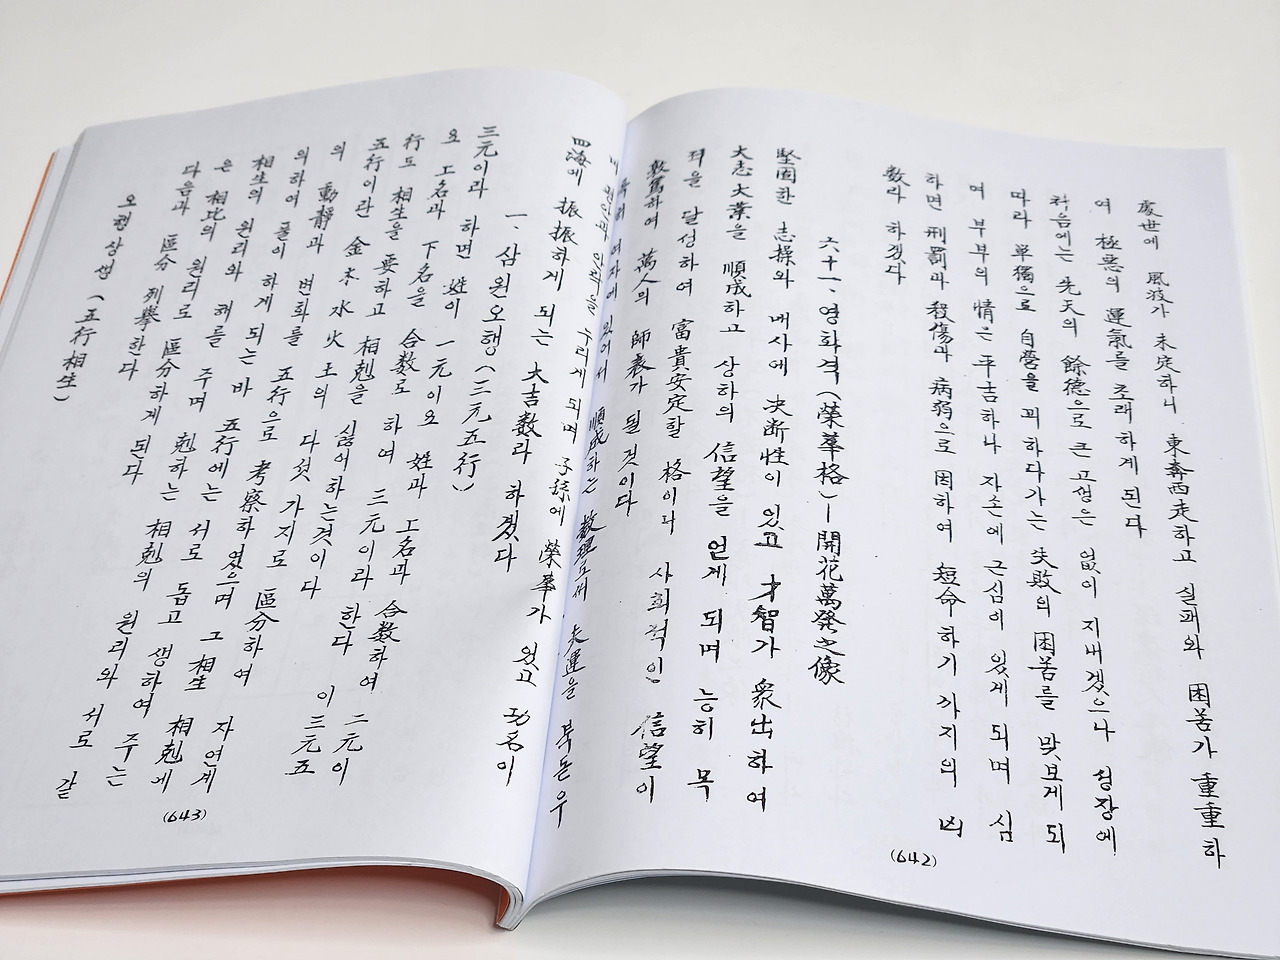 處世에 風波가 未定하니 東奔西走하고 실패와 困苦가 重重하
여 極惡의 運氣를 초래하게 된다
처음에는 先天의 餘德으로 큰 고생은 없이 지내겠으나 성장에
따라 單獨으로 自營을 꾀하다가는 失敗의 困苦를 맛보게 되
여 부부의 情은 平吉하나 자손에 근심이 있게 되며 심
하면 刑罰과 殺傷과 病弱으로 困하여 短命하기 까지의 凶
数라 하겠다
六十一、영화격(榮華格)ー開花萬發之像
堅固한 志操와 매사에 決断性이 있고 才智가 衆出하여
大志大業을 順成하고 상하의 信望을 얻게 되며 능히 목
적을 달성하여 富貴安定할 格이라 사회적인 信望이
敦篤하여 萬人의 師表가 될 것이다
여자에 있어서 順成하는 数理로써 夫運을 북돋우
안락을 누리게 되며 子孫에 榮華가 있고 功名이
四海에 振振하게 되는 大吉数라 하겠다
一、삼원오행(三元五行)
三元이라 하면 姓이 一元이요 姓과 上名과 合数하여 二元이
요 上名과 下名을 合数로 하여 三元이라 한다 이 三元五
行도 相生을 要하고 相剋을 싫어하는것이다
五行이란 金木水火土의 다섯 가지로 區分하여 자연계
의 動靜과 변화를 五行으로 考察하였으며 그 相生 相剋에
의하여 풀이 하게 되는바 五行에는 서로 돕고 생하여 주는
相生의 원리와 해를 주며 剋하는 相剋의 원리와 서로 같
은 相比의 원리로 區分하게 된다
다음과 區分 列擧한다
오행상생(五行相生)
(642)
(643)